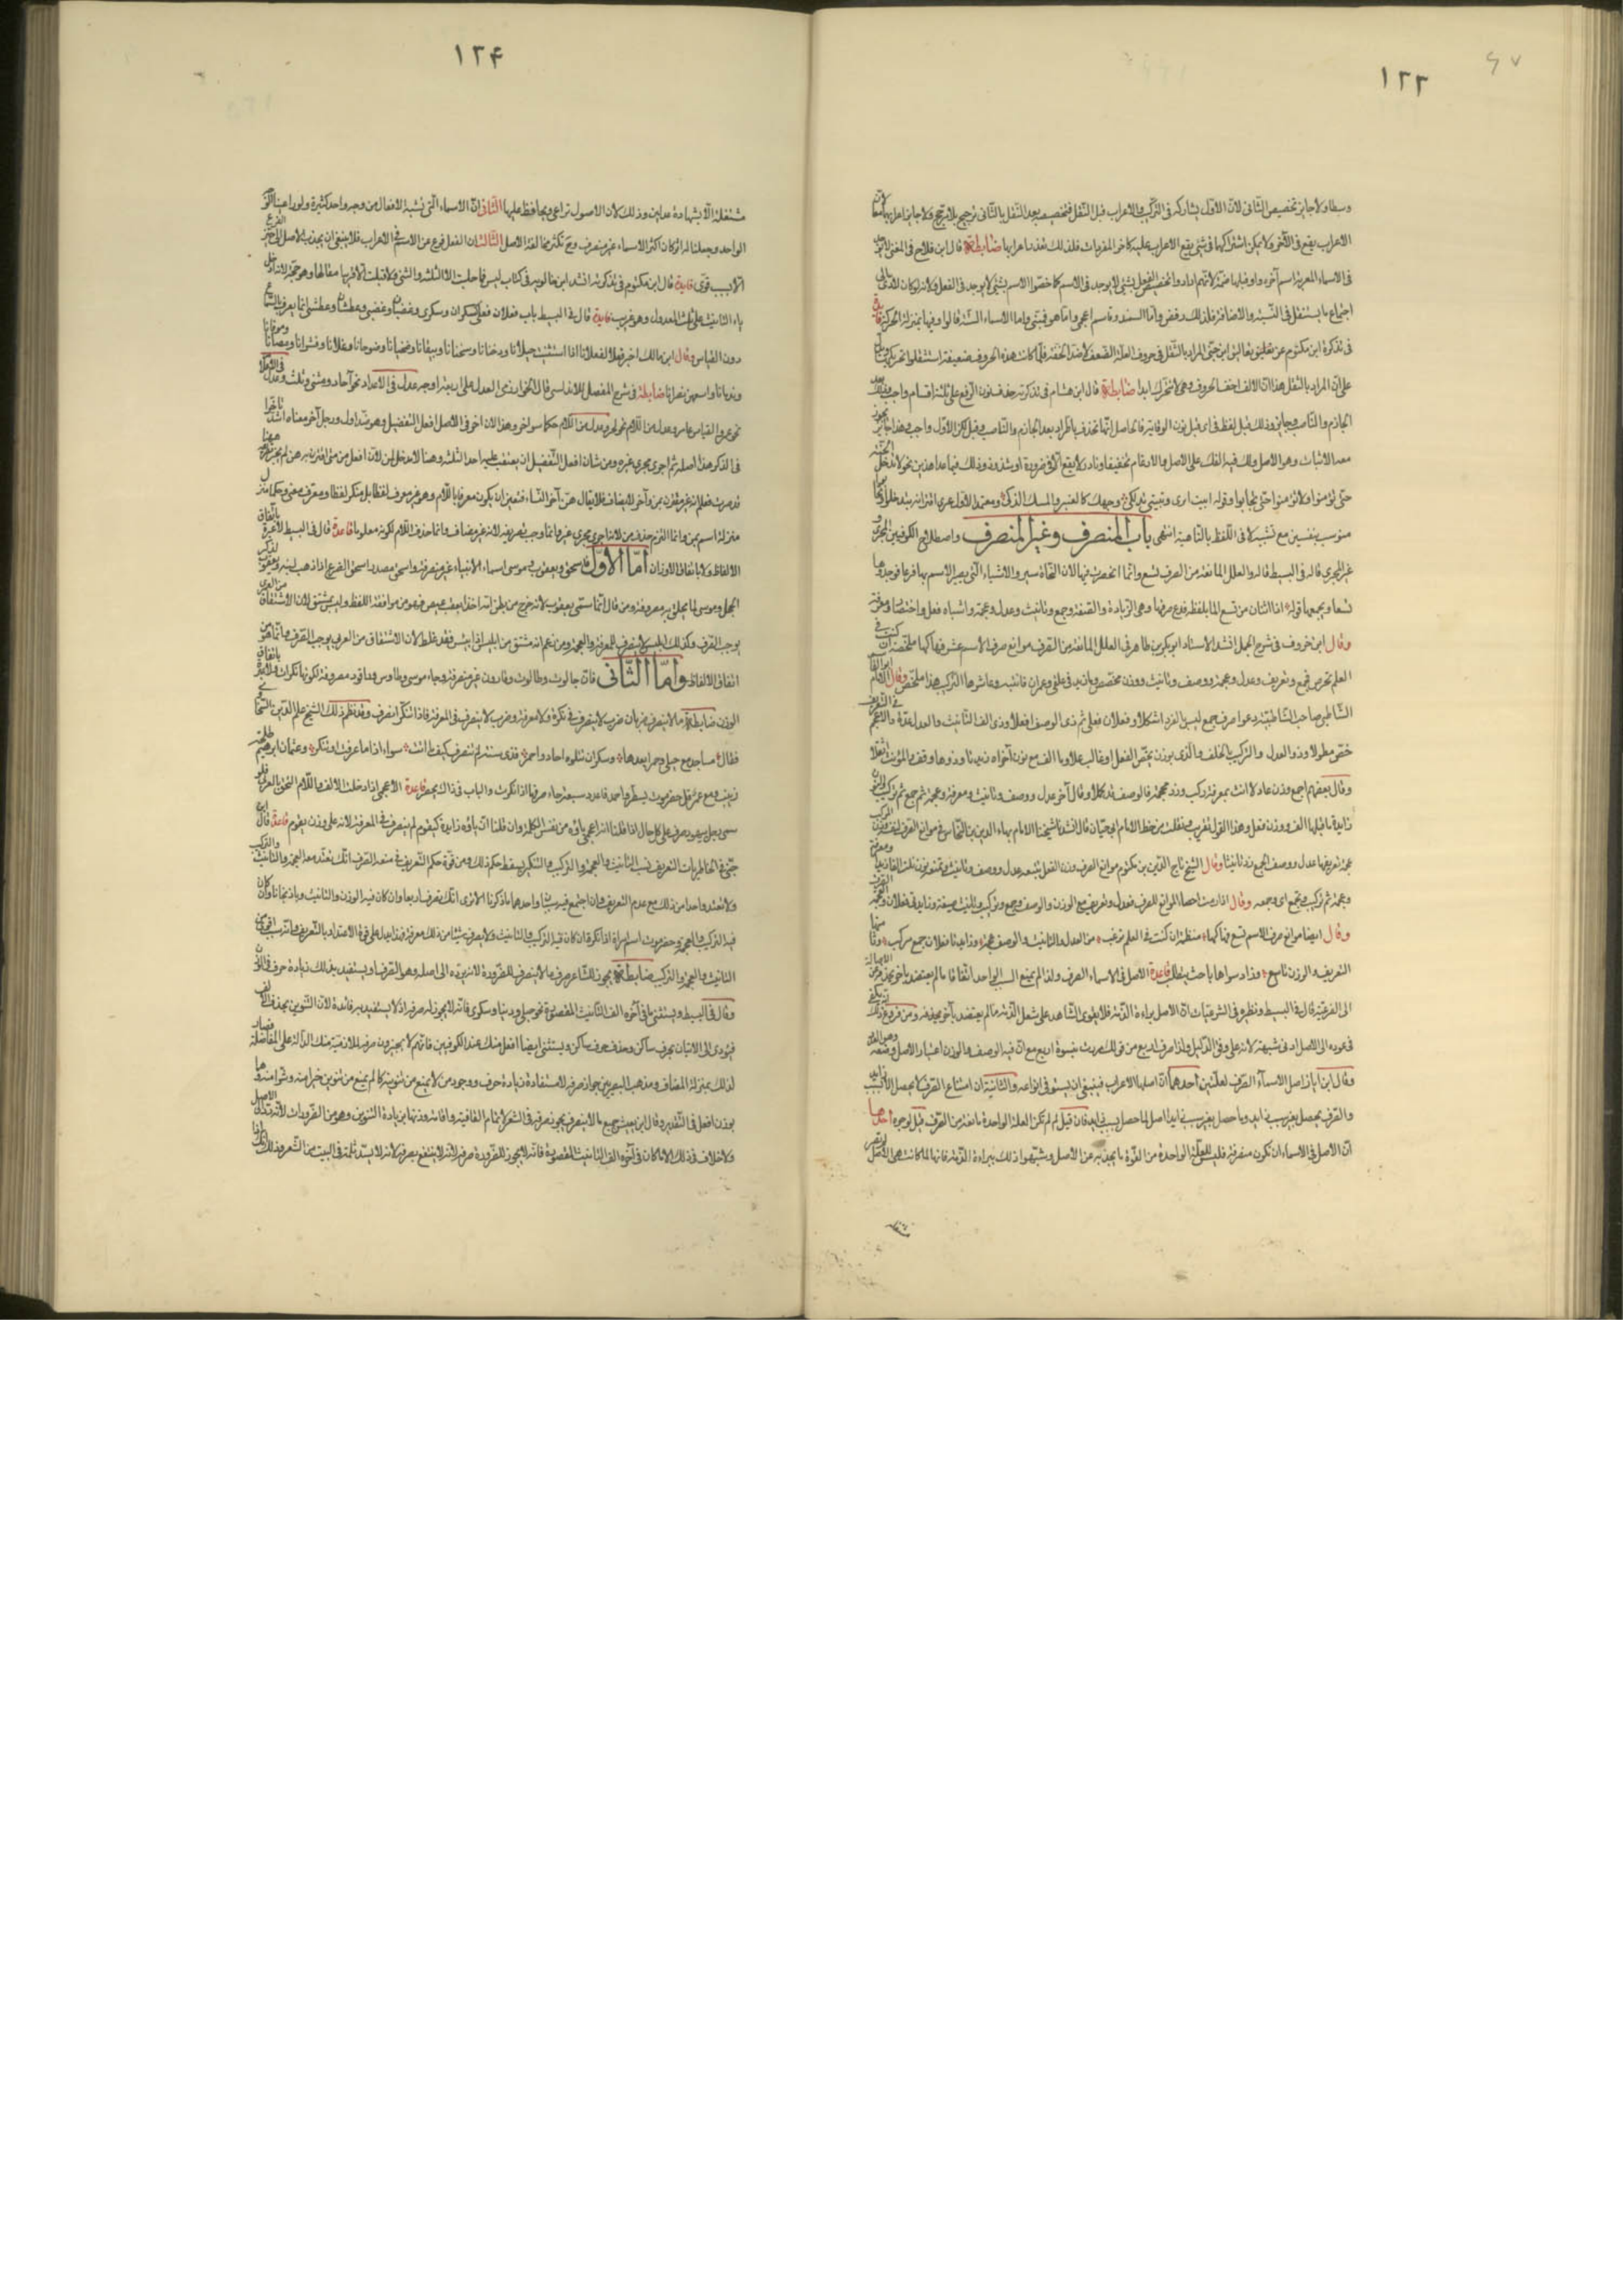 ١٣٣
وسطا ولا جايز تخصيص الثانى لانّ الاول يشاركه فى التركيب والاعراب قبل النقل فتخصيصه بعد النقل بالثانى ترجيح بلا مرجح ولا جايز اعرابهما معا لان
الاعراب يقع فى الآخر ولا يمكن اشتراكهما فى شئ يقع الاعراب عليه كآخر المفردات فلذلك تعذر اعرابها ضابطة قال ابن فلاح فى المغنى لا يوجد
فى الاسماء المعربة اسم آخره واو قبلها ضمة لانهم ارادوا تخصيص الفعل بشئ لا يوجد فى الاسم كما خصوا الاسم بشئ لا يوجد فى الفعل ولانه لو كان لادى الى
اجتماع ما يستثقل فى النسبة والاضافة فلذلك رفض وامّا السمندو فاسم اعجمى وامّا هو فمبنى واما الاسماء الستة قالوا وفيها بمنزلة الحركة فايدة
فى تذكرة ابن مكتوم عن تعاليق ابن جنى المراد بالثقل فى حروف العلة الضعف لا ضد الخفة فلمّا كانت هذه الحروف ضعيفة استثقلوا تحريكها ويدل
على انّ المراد بالثقل هذا انّ الالف اخف الحروف وهى لا تتحرك ابدا ضابطة قال ابن هشام فى تذكرته حذف نون الرفع على ثلثة اقسام واجب وذلك بعد
الجازم والناصب وجايز وذلك قبل لفظ فى اى قبل نون الوقاية فالحاصل انّها تحذف باطراد بعد الجازم والناصب وقبل لكن الاول واجب وهذا جائز يجوز
معه الاثبات وهو الاصل ولك فيه الفك على الاصل والادغام تخفيفا ونادر لا يقع الا فى ضرورة او شذوذ وذلك فيما عدا هذين نحو لا تدخلوا الجنة
حتى تؤمنوا ولا تؤمنوا حتى تحابوا وقوله ابيت اسرى وتبيتى تدلكى وجهك كالعنبر والمسك الذكى
منوب بنفسين مع تشبيه لا فى اللفظ بالناهية انتهى باب المنصرف وغير المنصرف واصطلاح الكوفيين المجرى و
غير المجرى قاله فى البسيط قال والعلل المانعة من الصرف تسع وانّما انحصرت فيها لان النحاة سبروا الاشياء التى يصير الاسم بها فرعا فوجدوها
تسعا ويجمعها قوله اذا اثنان من تسع المّا بلفظة فدع صرفها وهى الزيادة والصفة وجمع وتأنيث وعدل وعجمة واشباه فعل واختصار ومعرفة
وقال ابن خروف فى شرح الجمل انشدنا الاستاذ ابو بكر بن طاهر فى العلل المانعة من الصرف موانع صرف الاسم عشر فهاكها ملخصة ان كنت فى
العلم تحرص فجمع وتعريف وعدل وعجمة ووصف وتأنيث ووزن مخصص وما زيد فى علقى وعمران فانتبه وعاشرها التركيب هذا ملخص وقال الامام ابو القاسم
الشاطبى صاحب الشاطبية دعوا صرف جمع ليس بالفرد اشكلا وفعلان فعلى ثم ذى الوصف افعلا وذى الف التأنيث والعدل عدة والاعجم فى التعريف
خص مطولا وذو العدل والتركيب بالخلف والذى بوزن يخص الفعل او غالب علا وما الف مع نون اخراه زيدتا وذو هاء وقف والمؤنث اثقلا
وقال بعضهم اجمع وزن عادلا انث بمعرفة ركب وزد عجمة فالوصف قد كملا وقال آخر عدل ووصف وتأنيث ومعرفة وعجمة ثم جمع ثم تركيب والنون
زايدة ما قبلها الف ووزن فعل وهذا القول تقريب ونقلت من خط الامام ابى حيان قال انشدنا شيخنا الامام بهاء الدين بن النحاس فى موانع الصرف
وقال الشيخ تاج الدين بن مكتوم موانع الصرف وزن الفعل يتبعه عدل ووصف وتأنيث
وعجمة ثم تركيب وجمع وقال
وقال ايضا موانع صرف الاسم تسع فهاكها منظمة ان كنت فى العلم ترغب من العدل والتأنيث والوصف عجمة وزايدتا فعلان جمع مركب وثامنها
التعريف والوزن تاسع وزاد سواها باحث يتطلب قاعدة الاصل فى الاسماء الصرف ولذا لم يمنع السبب الواحد اتفاقا ما لم يعتضد بآخر يجذبه عن الاصالة
الى الفرعية قال فى البسيط ونظيره فى الشرعيات انّ الاصل براءة الذمة فلا يقوى الشاهد على شغل الذمة ما لم يعتضد بآخر ومن فروع ذلك انه يكفى
فى عوده الى الاصل ادنى شبهة لانه على وفق الدليل ولذا صرف اربع من قولك مررت بنسوة اربع مع انّ فيه الوصف والوزن اعتبارا لاصل وضعه وهو العدد
وقال ابن اياز اصل الاسماء الصرف لعلتين احدهما انّ اصلها الاعراب فينبغى ان يستوفى انواعه والثانية ان امتناع الصرف لا يحصل الا بسبب زايد
والصرف يحصل بغير سبب زايد وما حصل بغير سبب زايد اصل لما حصل بسبب زايد فان قيل لم لم تكن العلة الواحدة مانعة من الصرف قيل لوجوه احدها
انّ الاصل فى الاسماء ان تكون منصرفة فليس للعلة الواحدة من القوة ما يجذبه عن الاصل وشبهوا ذلك ببراءة الذمة فانها لما كانت هى الاصل لم تصر
١٣۴
مشتغلة الّا بشهادة عدلين وذلك لان الاصول تراعى ويحافظ عليها الثانى انّ الاسماء التى تشبه الافعال من وجه واحد كثيرة ولو راعينا الوجه
الواحد وجعلنا له اثرا كان اكثر الاسماء غير منصرف وح تكثر مخالفة الاصل الثالث ان الفعل فرع عن الاسم فى الاعراب فلا ينبغى ان يجذب الاصل الى حيز الفرع
الا بسبب قوى فايدة قال ابن مكتوم فى تذكرته انشد ابن خالويه فى كتاب ليس فما حلبت الا الثلثة والثنى ولا قيلت الا قريبا مقالها وهو حجة لادخال
هاء التأنيث على ثلث المعدول وهو غريب فايدة قال فى البسيط باب فعلان فعلى كسكران وسكرى وغضبان وغضبى وعطشان وعطشى انما يعرف بالسماع
دون القياس وقال ابن مالك اجز فعلى لفعلانا اذا استثنيت حبلانا ودخنانا وسخنانا وسيفانا وضحيانا وصوحانا وعلانا وقشوانا ومصانا وموتانا
وندمانا واتبعهن نصرانا ضابطة فى شرح المفصل للاندلسى قال الخوارزمى العدل على اربعة اوجه عدل فى الاعداد نحو آحاد ومثنى وثلث وعدل فى الاعلام
نحو عمر والقياس عامر وعدل من اللام نحو سحر وعدل من اللام حكما نحو أخر وهذا لان اخر فى الاصل افعل التفضيل وهو ضد اول ورجل آخر معناه اشد تأخرا
فى الذكر هذا اصله ثم اجرى مجرى غيره ومن شان افعل التفضيل ان يعتقب عليه احد الثلثة وهنا لا مدخل لمن لان افعل من متى اقترن به من لم يجز تصريفه
قد صرف فعلم انه غير مقترن بمن وآخر لا يضاف فلا يقال هنّ آخر النساء فتعين ان يكون معرفا باللام وهو غير معرف لفظا بل منكر لفظا ومعرف معنى وحكما منزل
منزلة اسم بمن وانما التزم حذف من لانه اجرى مجرى غير وانما وجب تعريفه لانه غير مضاف وانما حذف اللام لكونه معلوما قاعدة قال فى البسيط لا عبرة باتفاق
الالفاظ ولا باتفاق الاوزان اما الاول فاسحق ويعقوب وموسى اسماء الانبياء غير منصرفة واسحق مصدر اسحق الضرع اذا ذهب لبنه ويعقوب لذكر
الحجل وموسى لما يحلق به مصروفة ومن قال انّما سمى يعقوب لانه خرج من بطن امه اخذا بعقب عيص فهو من موافقة اللفظ وليس بمشتق لان الاشتقاق من العربى
يوجب الصرف وكذلك ابليس لا ينصرف للمعرفة والعجمة ومن زعم انه مشتق من ابلس اذا يئس فقد غلط لان الاشتقاق من العربى يوجب الصرف وانما هو من
اتفاق الالفاظ وامّا الثانى فانّ جالوت وطالوت وقارون غير منصرفة وجاموس وطاوس وراقود مصروفة لكونها نكرات ولا عبرة باتفاق
الوزن ضابطة ما لا ينصرف ضربان ضرب لا ينصرف فى نكرة ولا معرفة وضرب لا ينصرف فى المعرفة فاذا نكر انصرف وقد نظم ذلك الشيخ علم الدين السخاوى
فقال مساجد مع حبلى وحمرا بعدها وسكران تتلوه احاد واحمر فذى ستة لم تنصرف كيفما اتت سواء اذا ما عرفت او تنكر وعثمان ابراهيم طلحة
زينب ومع عمر قل حضرموت يسطر واحمد فاعدد سبعة جاء صرفها اذا نكرت والباب فى ذاك يحصر قاعدة الاعجمى اذا دخلت الالف واللام التحق بالعربى فلو
سمى رجل بيهود صرف على كل حال اذا قلنا انه اعجمى ياؤه من نفس الكلمة وان قلنا انّ ياؤه زايدة كيقوم لم ينصرف فى المعرفة لانه على وزن يقوم قاعدة قال ابن
جنى فى الخاطريات التعريف يثبت التأنيث والعجمة والتركيب والتنكير يسقط حكم ذلك ومن قوة حكم التعريف فى منعه الصرف انّك تعتد معه العجمة والتأنيث والتركيب
ولا تعتد واحدا من ذلك مع عدم التعريف وان اجتمع فيه سببان واحدهما ما ذكرنا الا ترى انك تصرف اربعا وان كان فيه الوزن والتأنيث وباذنجانا وان كان
فيه التركيب والعجمة وحضرموت اسم امرأة اذا نكرته ان كان فيه التركيب والتأنيث ولا يصرف شيئا من ذلك معرفة فهذا يدل على قوة الاعتداد بالتعريف وانه سبب اقوى من
التأنيث والعجمة والتركيب ضابطة يجوز للشاعر صرف ما لا ينصرف للضرورة لانه يرده الى اصله وهو الصرف ويستفيد بذلك زيادة حرف فى الوزن
وقال فى البسيط ويستثنى ما فى آخره الف التأنيث المقصورة نحو حبلى ودنيا وسكرى فانه لا يجوز له صرفه اذ لا يستفيد به فائدة لان التنوين يحذف الف
فيؤدى الى الاتيان بحرف ساكن وحذف حرف ساكن ويستثنى ايضا افعل منك عند الكوفيين فانهم لا يجيزون صرفه لملازمته منك الدالة على المفاضلة فصار
لذلك بمنزلة المضاف ومذهب البصريين جواز صرفه لاستفادة زيادة حرف ووجود من لا يمنع من تنوينه كما لم يمنع من تنوين خيرا منه وشرا منه وهما
بوزن افعل فى التقدير وقال ابن يعيش جميع ما لا ينصرف يجوز صرفه فى الشعر لاتمام القافية واقامة وزنها بزيادة التنوين وهو من الضرورات لانه يرد الى الاصل
ولا خلاف فى ذلك الا ما كان فى آخره الف التأنيث المقصورة فانه لا يجوز للضرورة صرفه لانه لا ينتفع بصرفه لانه لا يسد ثلمة فى البيت من الشعر وذلك انك اذا